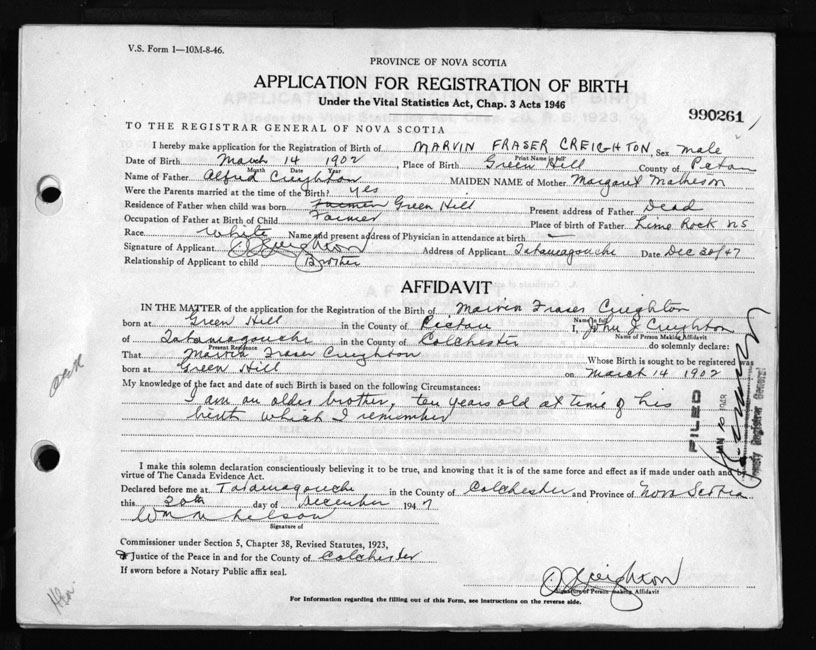 V.S. Form 1—10M-8-46.
PROVINCE OF NOVA SCOTIA
APPLICATION FOR REGISTRATION OF BIRTH
Under the Vital Statistics Act, Chap. 3 Acts 1946
990261
TO THE REGISTRAR GENERAL OF NOVA SCOTIA
I hereby make application for the Registration of Birth of MARVIN FRASER CREIGHTON, Sex male
Print Name in full
Date of Birth March 14 1902, Place of Birth Green Hill County of Pictou
Month Date Year
Name of Father Alfred Creighton MAIDEN NAME of Mother Margaret Matheson
Were the Parents married at the time of the Birth? yes
Residence of Father when child was born Farmer Green Hill Present address of Father Dead
Occupation of Father at Birth of Child Farmer Place of birth of Father Lime Rock NS
Race White Name and present address of Physician in attendance at birth —
Signature of Applicant J J Creighton Address of Applicant Tatamagouche Date Dec 20/47
Relationship of Applicant to child Brother
AFFIDAVIT
IN THE MATTER of the application for the Registration of the Birth of Marvin Fraser Creighton
Name in full
born at Green Hill in the County of Pictou I, John J Creighton
Name of Person Making Affidavit
of Tatamagouche in the County of Colchester do solemnly declare:
Present Residence
That Marvin Fraser Creighton Whose Birth is sought to be registered was
born at Green Hill on March 14 1902
My knowledge of the fact and date of such Birth is based on the following Circumstances:
I am an older brother, ten years old at time of his
birth which I remember
FILED
JAN 10 1948
Deputy Registrar General
I make this solemn declaration conscientiously believing it to be true, and knowing that it is of the same force and effect as if made under oath and by
virtue of The Canada Evidence Act.
Declared before me at Tatamagouche in the County of Colchester and Province of Nova Scotia
this 20th day of December 1947
Wm M Nelson
Signature of
Commissioner under Section 5, Chapter 38, Revised Statutes, 1923,
Justice of the Peace in and for the County of Colchester
If sworn before a Notary Public affix seal.
J J Creighton
Signature of Person making Affidavit
For Information regarding the filling out of this Form, see instructions on the reverse side.